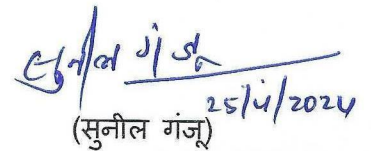 सुनील गंजू
25/4/2024
(सुनील गंजू)